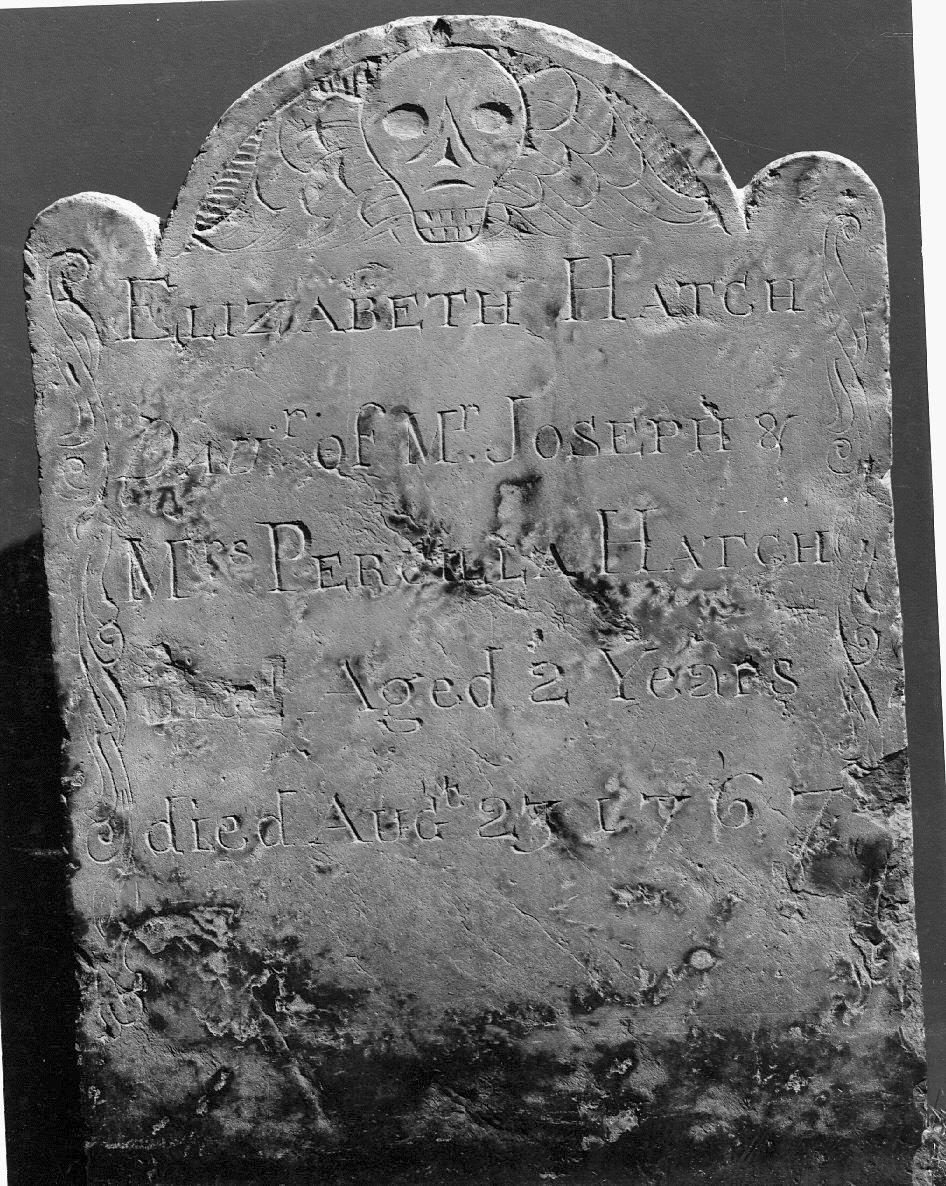 ELIZABETH HATCH
Daur. of Mr. JOSEPH &
Mrs PERCILLA HATCH
Aged 2 Years
died Augth 23 1767